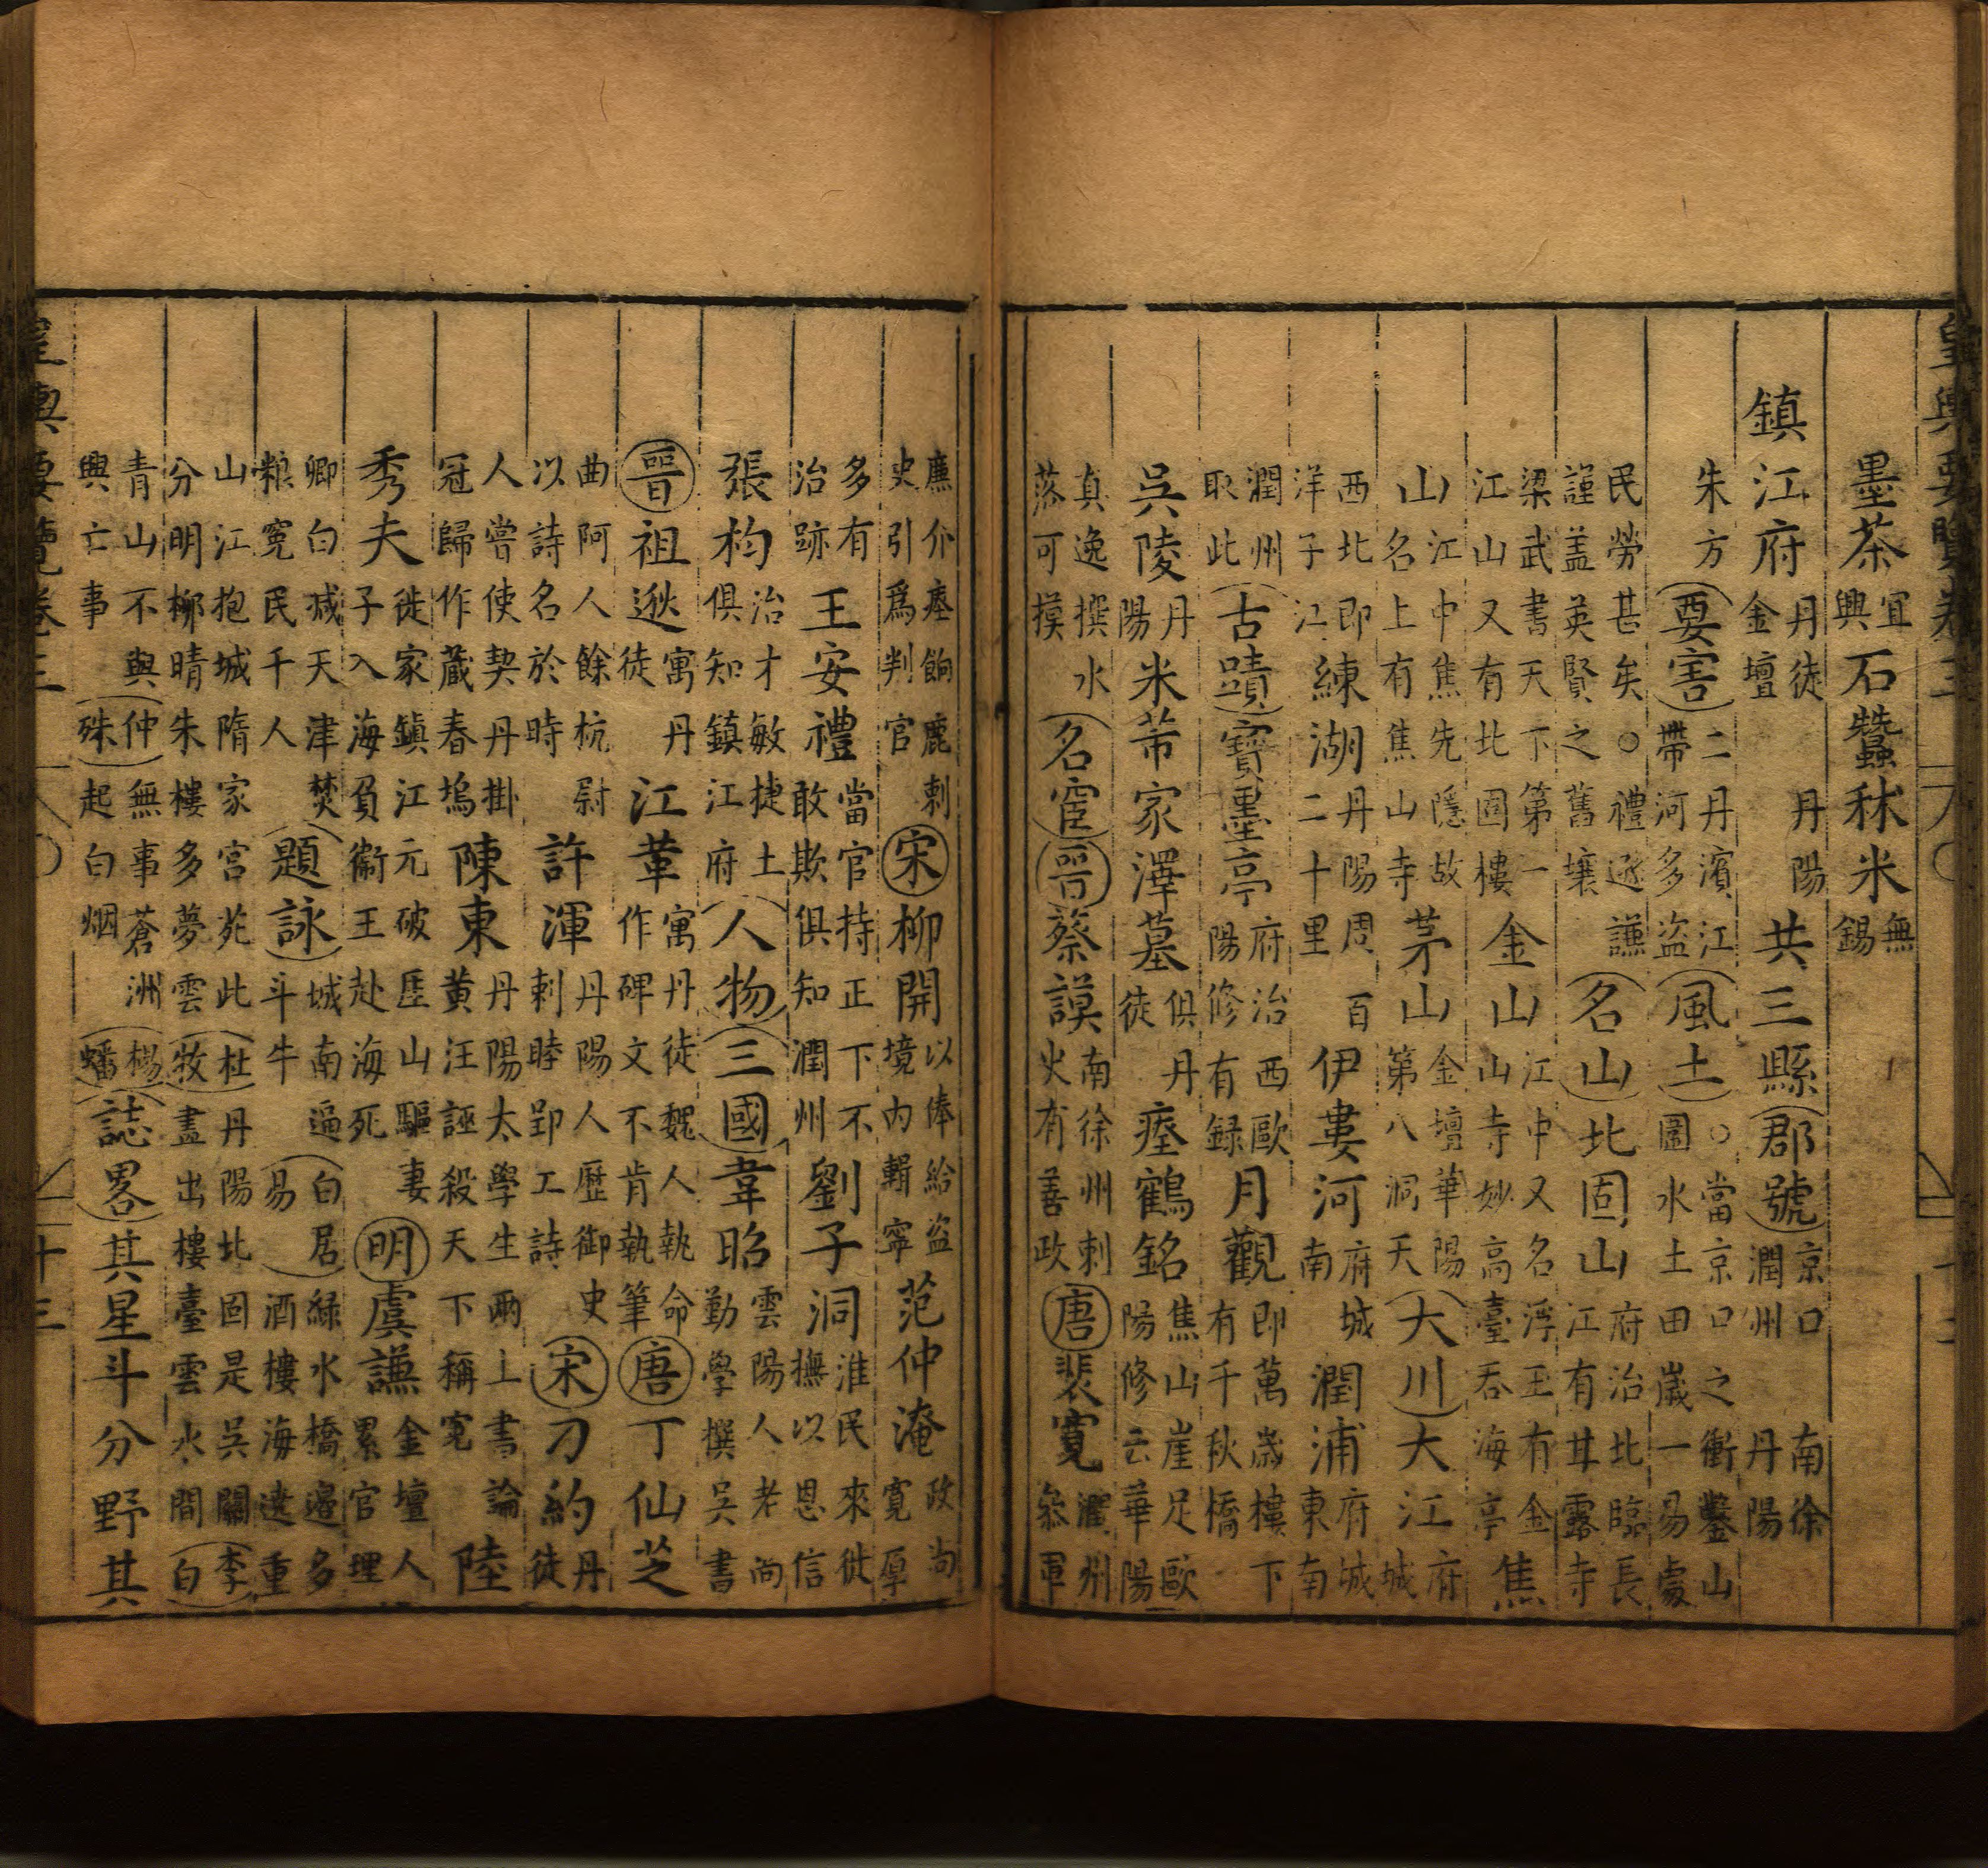 皇輿要覽卷三
墨茶宜興石蠶秫米無錫
鎮江府丹徒丹陽金壇共三縣郡號京口南徐潤州丹陽
朱方要害二丹濱江帶河多盜風土○當京口之衝鑿山圖水土田歲一易處
民勞甚矣○禮遜謙謹盖英賢之舊壤名山北固山府治北臨長江有甘露寺
梁武書天下第一江山又有北固樓金山江中又名浮玉有金山寺妙高臺吞海亭焦
山江中焦先隱故名上有焦山寺茅山金壇華陽第八洞天大川大江府城
西北即洋子江練湖丹陽周百二十里伊婁河府城南潤浦府城東南
潤州取此古蹟寶墨亭府治西歐陽修有録月觀即萬歲樓下有千秋橋
吳陵丹陽米芾家澤墓俱丹徒瘞鶴銘焦山崖足歐陽修云華陽
真逸撰水落可摸名宦晉蔡謨南徐州刺史有善政唐裴寬潤州叅軍
廉介瘞餉鹿刺史引爲判官宋柳開以俸給盜境内輯寧范仲淹政尚寬厚
多有治跡王安禮當官持正下不敢欺俱知潤州劉子洞淮民來徙撫以恩信
張枃治才敏捷土俱知鎮江府人物三國韋昭雲陽人老尚勤學撰吳書
晉祖逖寓丹徒江革寓丹徒魏人執命作碑文不肯執筆唐丁仙芝
曲阿人餘杭尉以詩名於時許渾丹陽人歷御史刺睦郢工詩宋刁約丹徒
人嘗使契丹掛冠歸作藏春塢陳東丹陽太學生兩上書論黄汪誣殺天下稱寃陸
秀夫徙家鎮江元破厓山驅妻子入海負衛王赴海死明虞謙金壇人累官理
卿白減天津焚粮寃民千人題詠城南遍斗牛白居易緑水橋邉多酒樓海遠重
山江抱城隋家宮苑此分明柳晴朱樓多夢雲杜牧丹陽北固是吳關畫出樓臺雲水間李白
青山不與興亡事仲殊無事蒼洲起白烟楊蟠誌畧其星斗分野其
皇輿要覽卷三 十三